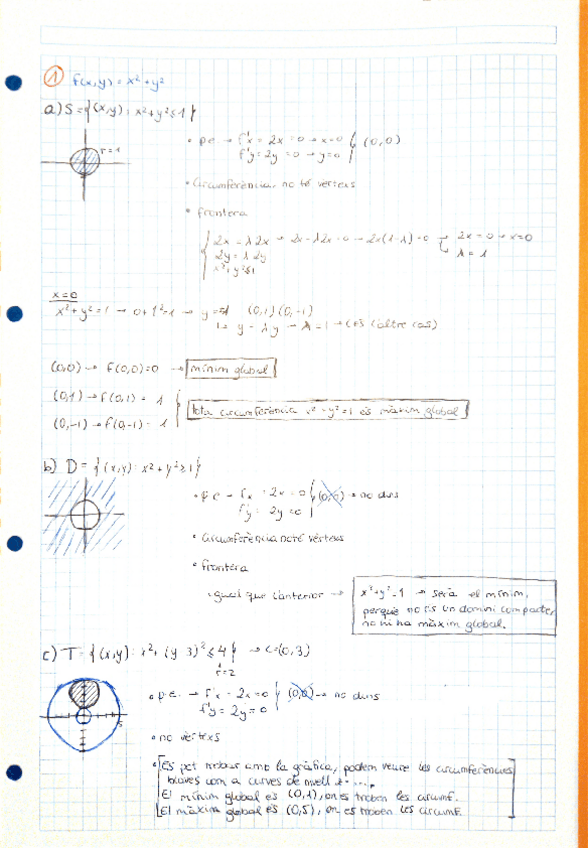 ① f(x,y) = x² + y²
a) S = {(x,y) : x² + y² ≤ 1}
r = 1
• p.c. → f'x = 2x = 0 → x = 0 } (0,0)
f'y = 2y = 0 → y = 0
• Circumferència, no té vèrtexs
• frontera
{ 2x = λ2x → 2x - λ2x = 0 → 2x(1-λ) = 0 → 2x = 0 → x = 0
2y = λ2y ↳ λ = 1
x² + y² ≤ 1
x = 0
x² + y² = 1 → 0 + 1² = 1 → y = ±1 (0,1) (0,-1)
↳ y = λy → λ = 1 → (és l'altre cas)
(0,0) → f(0,0) = 0 → mínim global
(0,1) → f(0,1) = 1
tota circumferència x² + y² = 1 és màxim global
(0,-1) → f(0,-1) = 1
b) D = {(x,y) : x² + y² ≥ 1}
• p.c → f'x = 2x = 0 } (0,0) → no dins
f'y = 2y = 0
• Circumferència no té vèrtexs
• frontera
igual que l'anterior → x² + y² = 1 → serà el mínim,
perquè no és un domini compacte,
no hi ha màxim global.
c) T = {(x,y) : x² + (y-3)² ≤ 4} → C=(0,3)
r=2
• p.c. → f'x = 2x = 0 } (0,0) → no dins
f'y = 2y = 0
• no vèrtexs
• Es pot trobar amb la gràfica, podem veure les circumferències
blaves com a curves de nivell
El mínim global és (0,1), on es troben les circumf.
El màxim global és (0,5), on es troben les circumf.